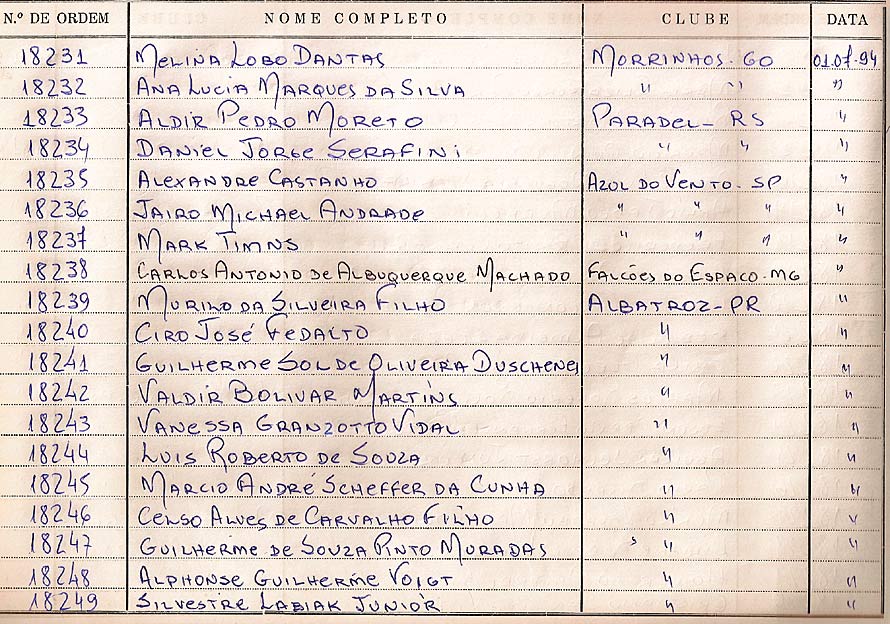 N.º DE ORDEM NOME COMPLETO CLUBE DATA
18231 MELINA LOBO DANTAS MORRINHOS-GO 01.07.94
18232 ANA LUCIA MARQUES DA SILVA " " "
18233 ALDIR PEDRO MORETO PARADEL-RS "
18234 DANIEL JORGE SERAFINI " " "
18235 ALEXANDRE CASTANHO AZUL DO VENTO-SP "
18236 JAIRO MICHAEL ANDRADE " " " "
18237 MARK TIMNS " " " "
18238 CARLOS ANTONIO DE ALBUQUERQUE MACHADO FALCÕES DO ESPACO-MG "
18239 MURILO DA SILVEIRA FILHO ALBATROZ-PR "
18240 CIRO JOSÉ FEDALTO " "
18241 GUILHERME SOL DE OLIVEIRA DUSCHENES " "
18242 VALDIR BOLIVAR MARTINS " "
18243 VANESSA GRANZOTTO VIDAL " "
18244 LUIS ROBERTO DE SOUZA " "
18245 MARCIO ANDRÉ SCHEFFER DA CUNHA " "
18246 CELSO ALVES DE CARVALHO FILHO " "
18247 GUILHERME DE SOUZA PINTO MURADAS " "
18248 ALPHONSE GUILHERME VOIGT " "
18249 SILVESTRE LABIAK JUNIOR " "